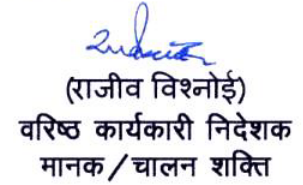 (राजीव विश्नोई)
वरिष्ठ कार्यकारी निदेशक
मानक/चालन शक्ति